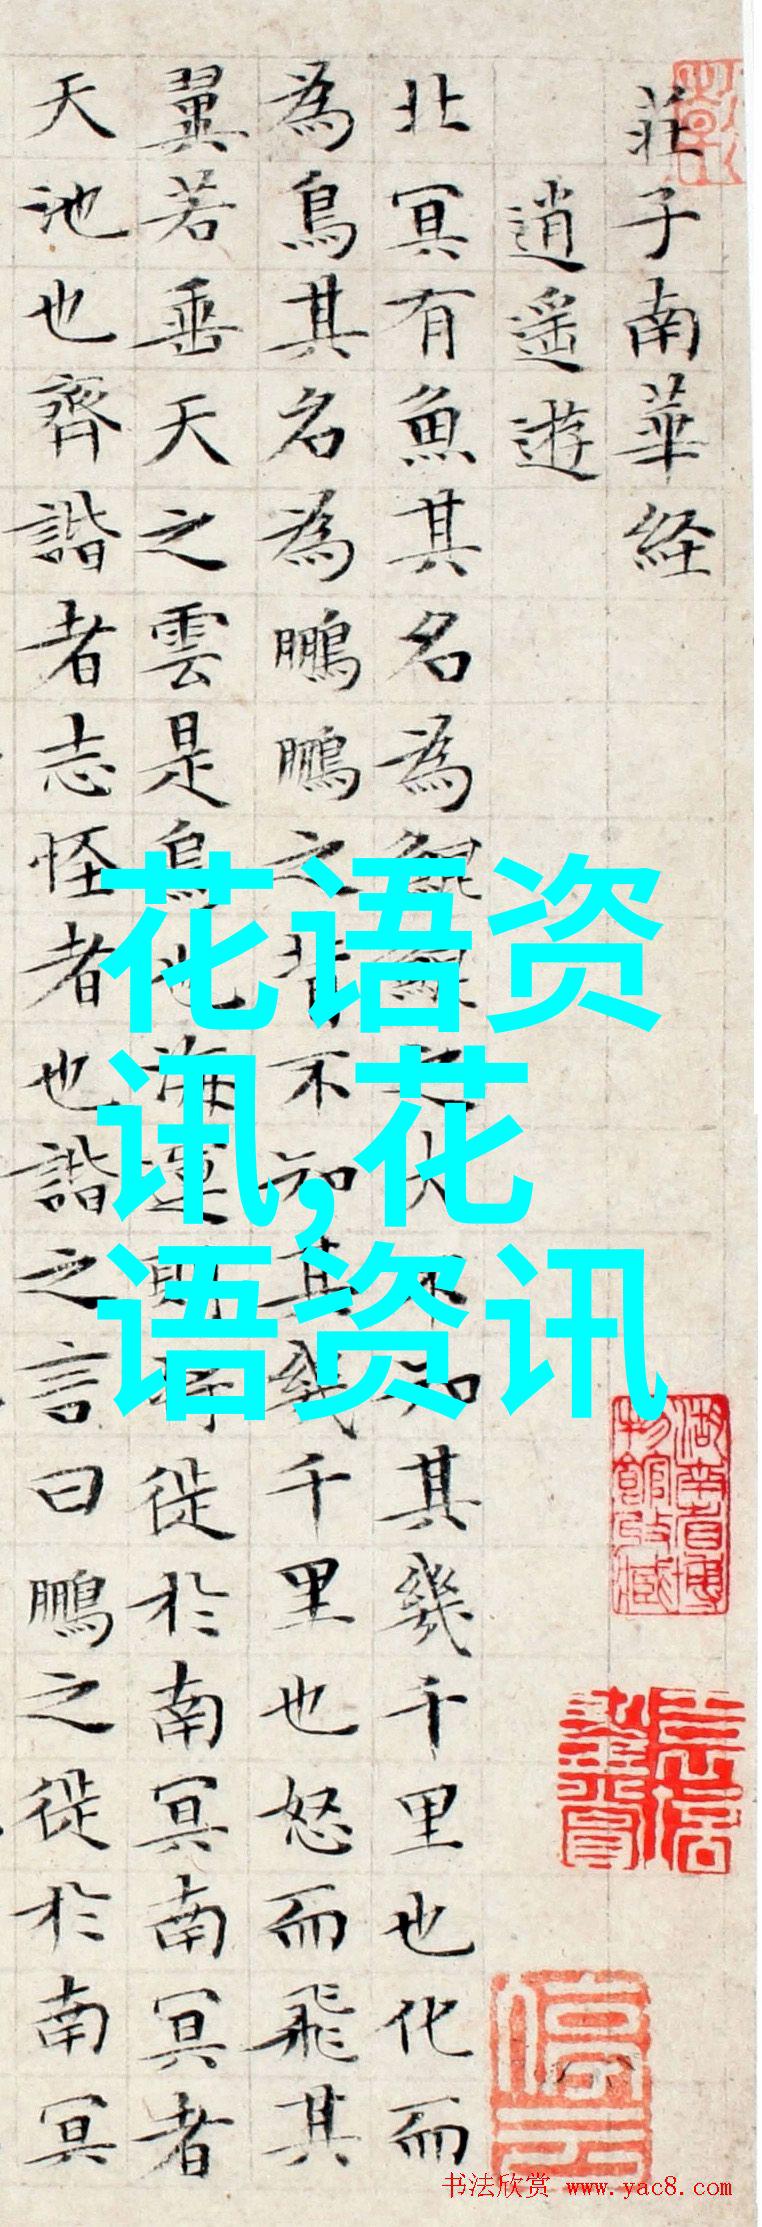 莊子南華経
逍遥遊
北冥有魚其名為鯤鯤之大不知其幾千里也化而
為鳥其名為鵬鵬之背不知其幾千里也怒而飛其
翼若垂天之雲是鳥也海運則将徙於南冥南冥者
天池也齊諧者志怪者也諧之言曰鵬之徙於南冥
花语资
讯,花
语资讯
湖南省博
物館收藏
书法欣赏 www.yac8.com